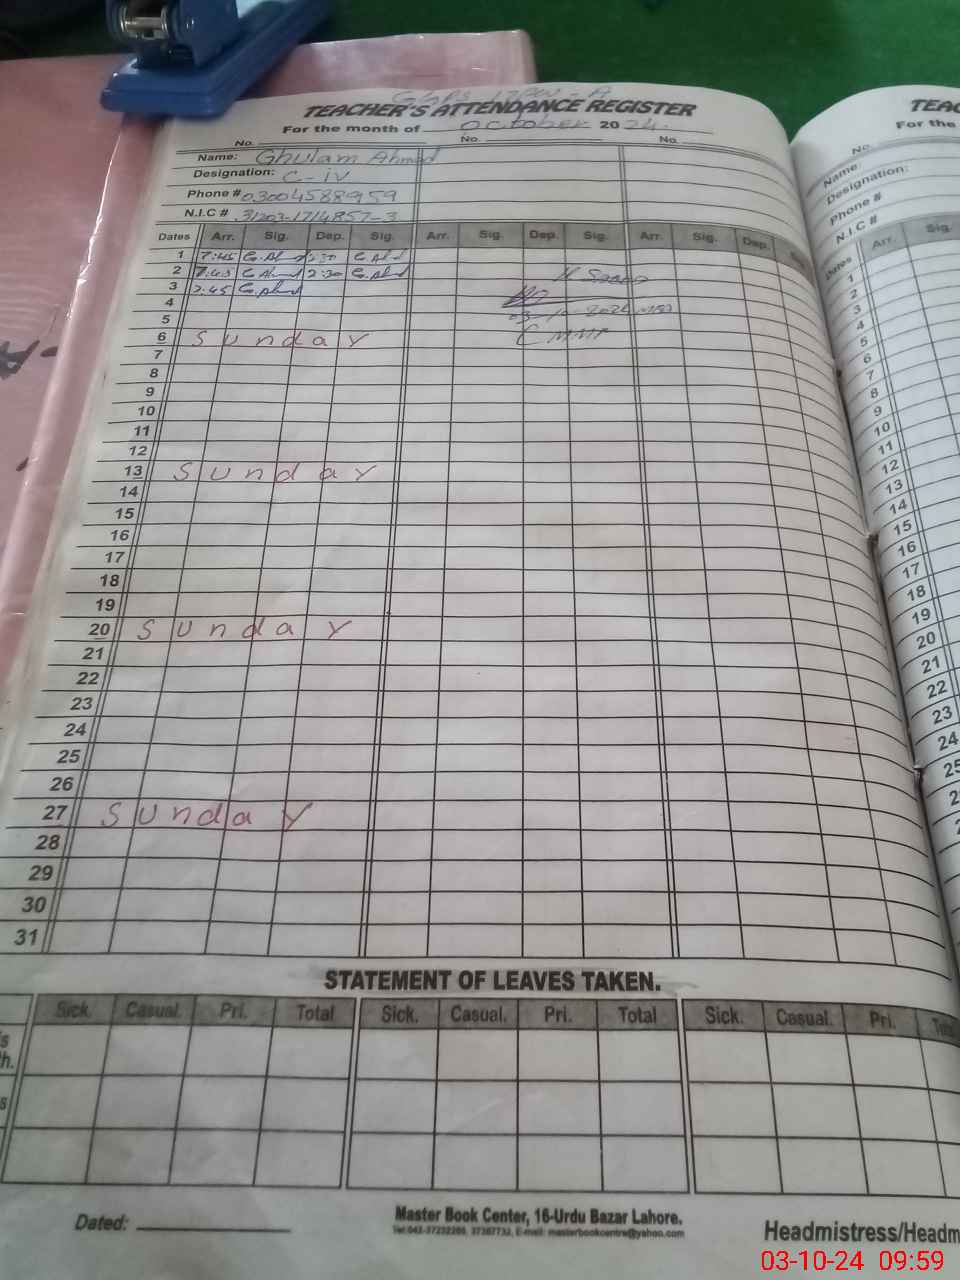 TEACHER'S ATTENDANCE REGISTER
For the month of October 2024
No. No. No.
Name: Ghulam Ahmed
Designation: C-iv
Phone # 03004588959
N.I.C # 31203-1714857-3
Dates Arr. Sig. Dep. Sig. Arr. Sig. Dep. Sig. Arr. Sig. Dep.
1 7:45 G. Ahmd 2:30 G. Ahd
2 7:45 G. Ahmd 2:30 G. Ahd
3 7:45 G. Ahmd
4
5
6 Sunday
7
8
9
10
11
12
13 Sunday
14
15
16
17
18
19
20 Sunday
21
22
23
24
25
26
27 Sunday
28
29
30
31
03-10-2024
STATEMENT OF LEAVES TAKEN.
Sick. Casual. Pri. Total Sick. Casual. Pri. Total Sick. Casual. Pri.
Dated:
Master Book Center, 16-Urdu Bazar Lahore.
Headmistress/Headm
TEAC
For the
No.
Name:
Designation:
Phone #
N.I.C #
Dates Arr. Sig.
1
2
3
4
5
6
7
8
9
10
11
12
13
14
15
16
17
18
19
20
21
22
23
24
25
03-10-24 09:59